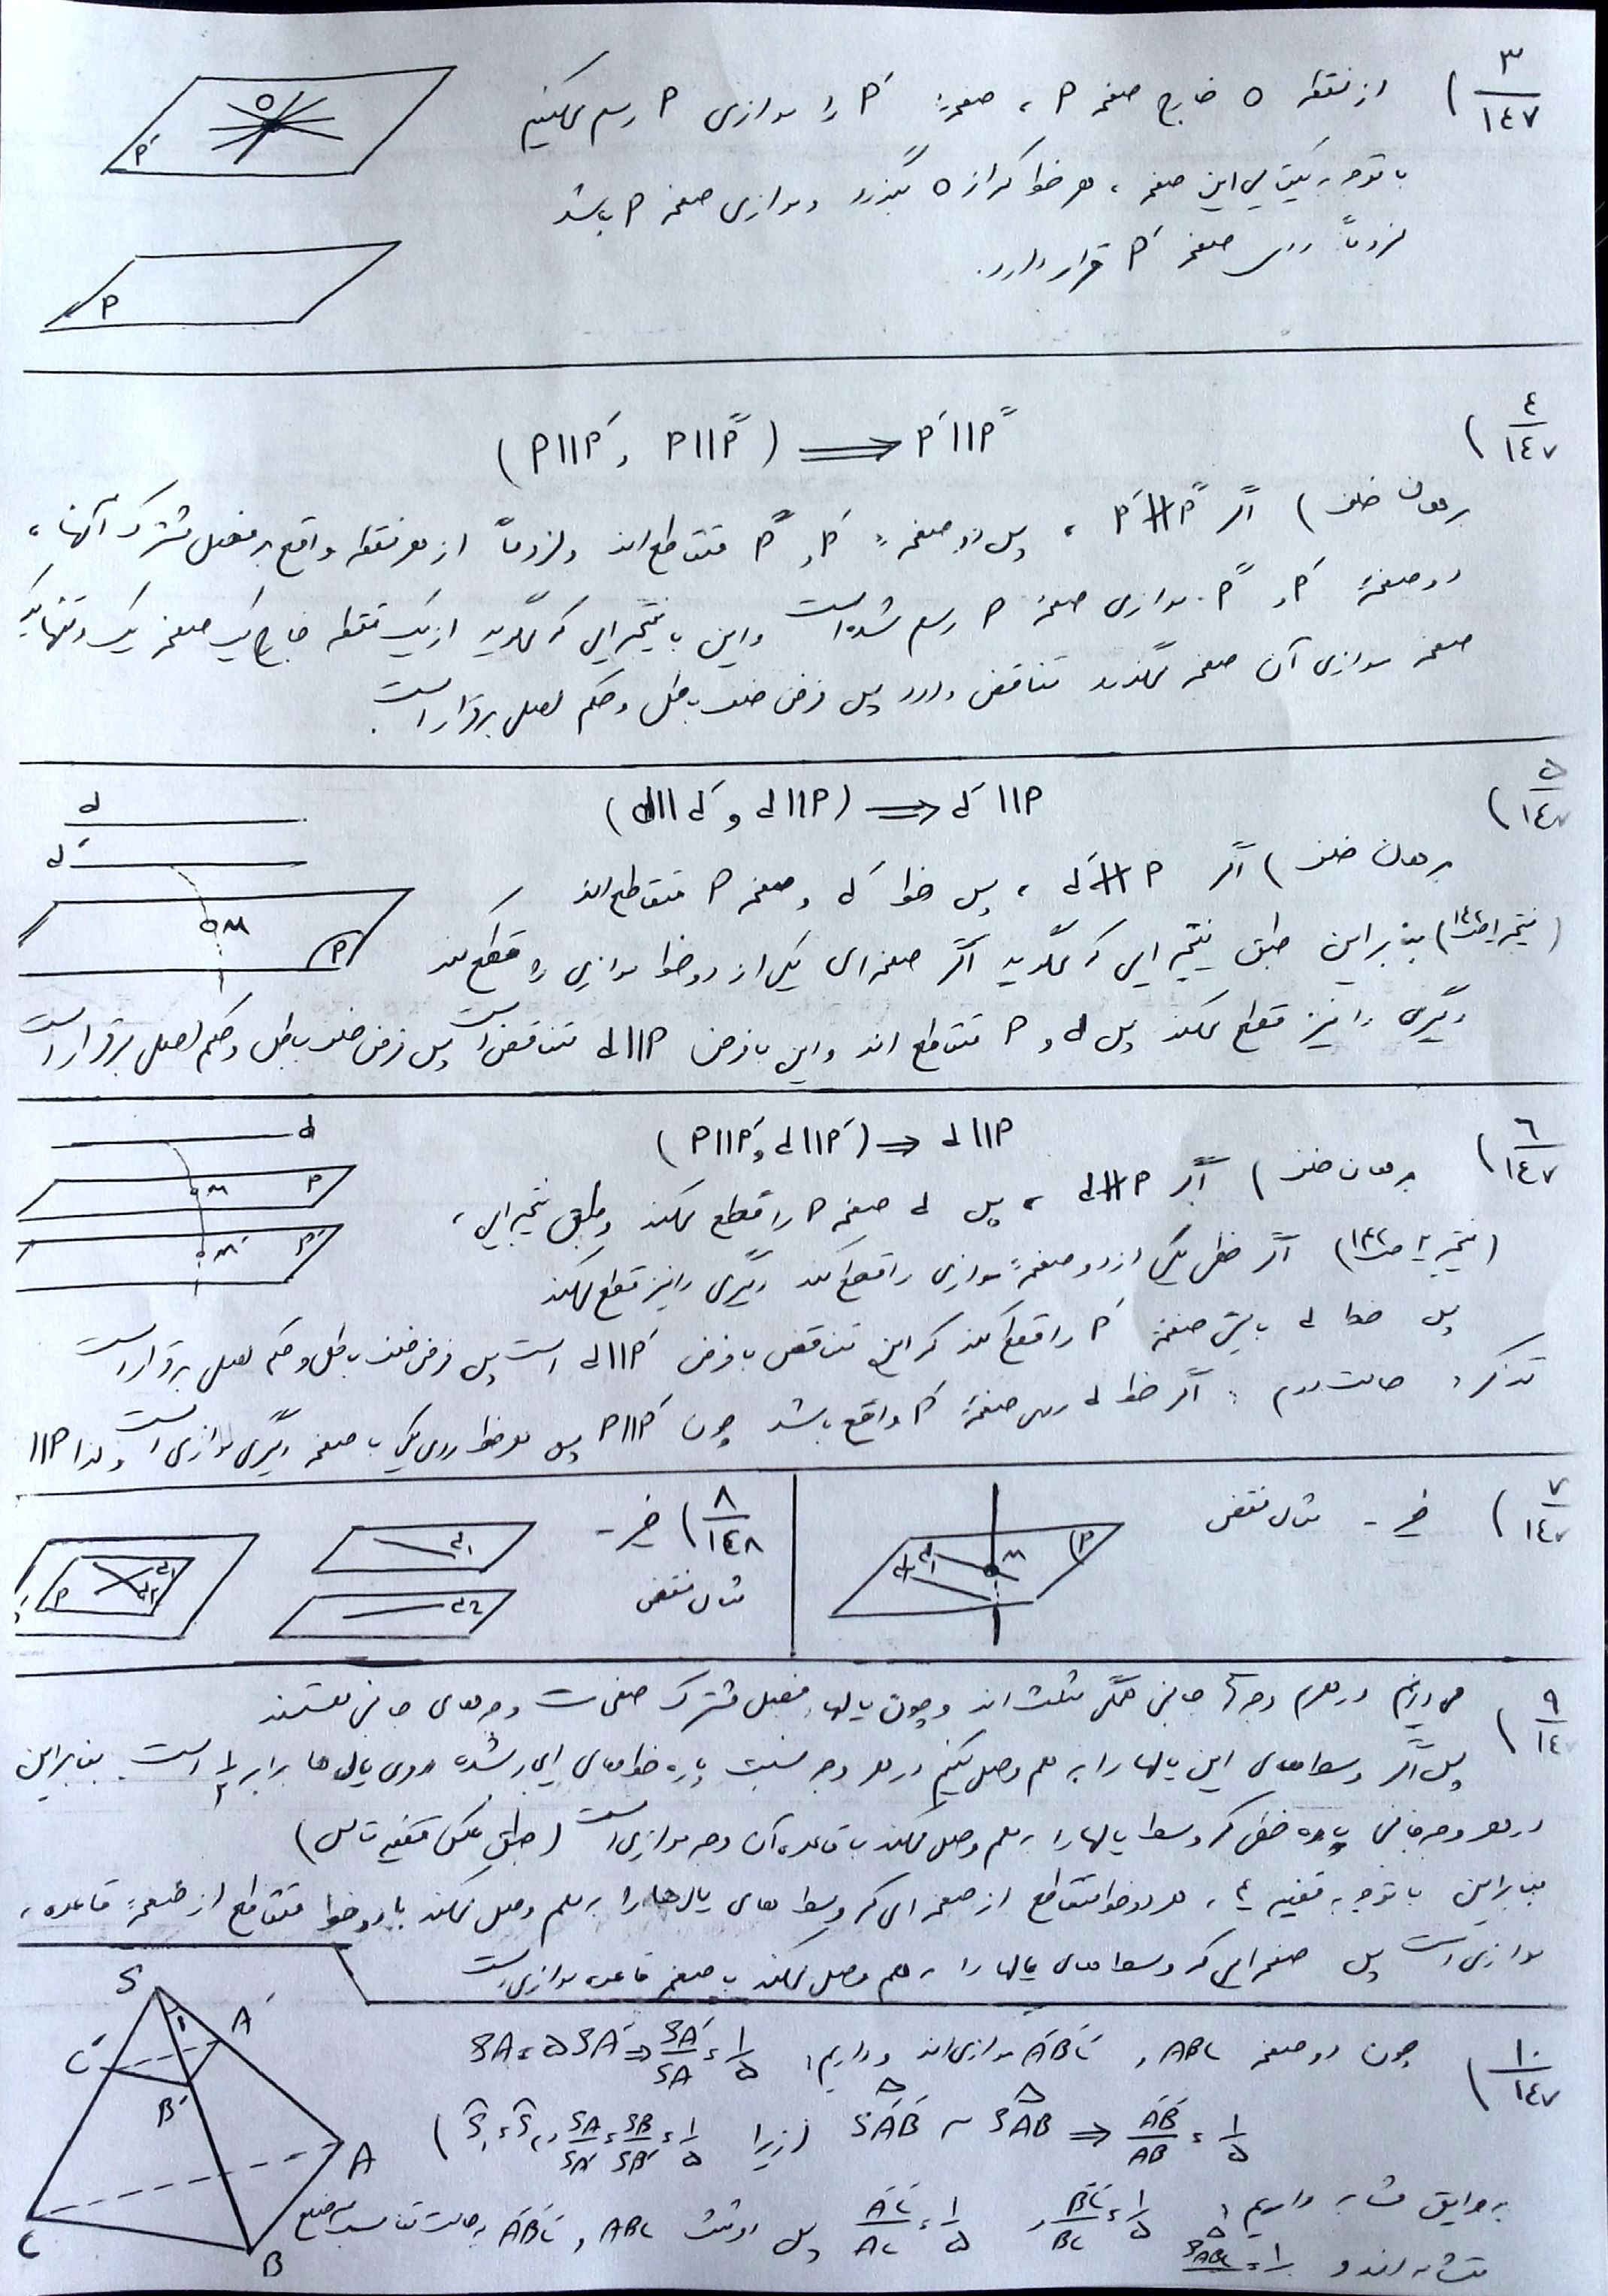 ٣/١٤٧) از نقطه O خارج صفحه P ، صفحهٔ P′ را موازی P رسم میکنیم
با توجه به یکتایی این صفحه ، هر خط که از O بگذرد و موازی صفحه P باشد
لزوماً روی صفحه P′ قرار دارد.
O
P′
P
٤/١٤٧) (P||P′ , P||P″) ⟹ P′||P″
برهان خلف) اگر P′∦P″ ، پس دو صفحهٔ P′ و P″ متقاطع اند و لزوماً از هر نقطه واقع بر فصل مشترک آنها ،
دو صفحهٔ P′ و P″ موازی صفحه P رسم شده است و این با نتیجه ای که میگوید از یک نقطه خارج یک صفحه یک و تنها یک
صفحه موازی آن صفحه میگذرد تناقض دارد پس فرض خلف باطل و حکم اصلی برقرار است.
٥/١٤٧) (d||d′ و d||P) ⟹ d′||P
برهان خلف) اگر d′∦P ، پس خط d′ و صفحه P متقاطع اند
(نتیجه ١ ص ١٤٢) بنابراین طبق نتیجه ای که میگوید اگر صفحه ای یکی از دو خط موازی را قطع کند
دیگری را نیز قطع میکند پس d و P متقاطع اند و این با فرض d||P تناقض است پس فرض خلف باطل و حکم اصلی برقرار است
d
d′
M
P
٦/١٤٧) (P||P′ , d||P′) ⟹ d||P
برهان خلف) اگر d∦P ، پس d صفحه P را قطع میکند و طبق نتیجه ای ،
(نتیجه ٢ ص ١٤٢) اگر خطی یکی از دو صفحهٔ موازی را قطع کند دیگری را نیز قطع میکند
پس خط d بایستی صفحهٔ P′ را قطع کند که این تناقض با فرض d||P′ است پس فرض خلف باطل و حکم اصلی برقرار است
تذکر : حالت دوم : اگر خط d روی صفحهٔ P′ واقع باشد چون P||P′ پس هر خط روی یکی با صفحه دیگری موازی است و لذا ||P
d
M P
M′ P′
٧/١٤٧) خیر - مثال نقض
d₁ M P
٨/١٤٨) خیر - مثال نقض
d₁
d₂
P d₁ d₂
٩/١٤) می دانیم در هرم وجه های جانبی همگی مثلث اند و چون یالها، فصل مشترک صفحات وجه های جانبی هستند
پس اگر وسطهای این یالها را به هم وصل کنیم در هر وجه نسبت پاره خطهای ایجاد شده روی یال ها برابر ١/٢ است. بنابراین
در هر وجه جانبی پاره خطی که وسط یالها را به هم وصل میکند با قاعده آن وجه موازی است (طبق عکس قضیه تالس)
بنابراین با توجه به قضیه ٤ ، هر دو خط متقاطع از صفحه ای که وسط های یال ها را به هم وصل میکند با دو خط متقاطع از صفحهٔ قاعده ،
موازی است پس صفحه ای که وسط های یالها را به هم وصل میکند با صفحه قاعده موازی است
١٠/١٤٧) چون دو صفحه ABC و A′B′C′ موازی اند و داریم: SA = ٥SA′ ⟹ SA′/SA = ١/٥
SA′B′ ~ SAB ⟹ A′B′/AB = ١/٥ (زیرا SA′/SA = SB′/SB = ١/٥ , Ŝ₁ = Ŝ₁)
به طریق مشابه داریم : B′C′/BC = ١/٥ و A′C′/AC = ١/٥ پس دو مثلث ABC و A′B′C′ به حالت تناسب سه ضلع
متشابه اند و
S
A′
C′
B′
A
C
B